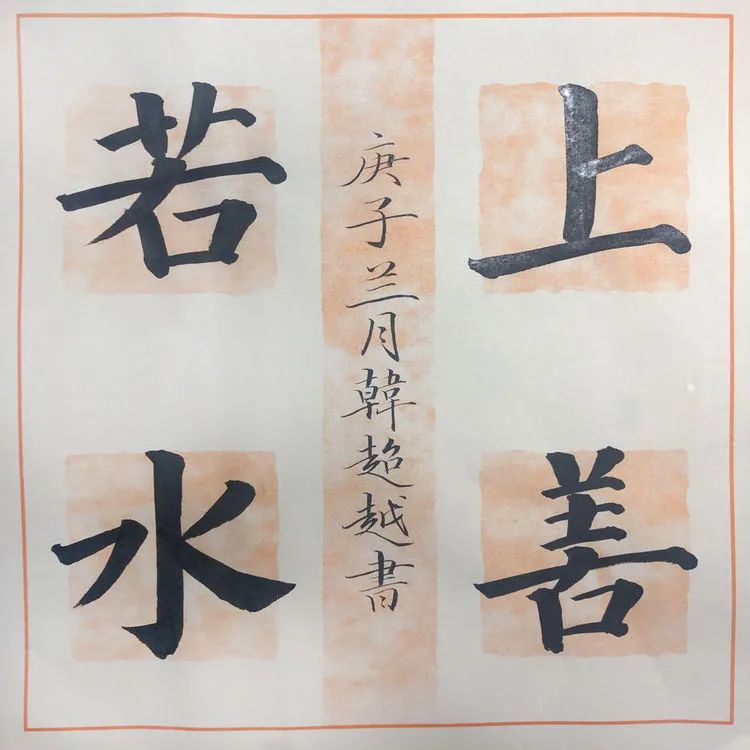 上善
若水
庚子兰月韓超越書